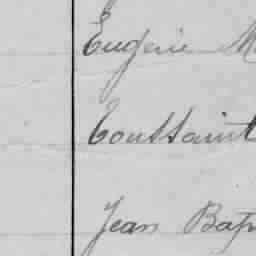 Eugenie M
Toussaint
Jean Bap